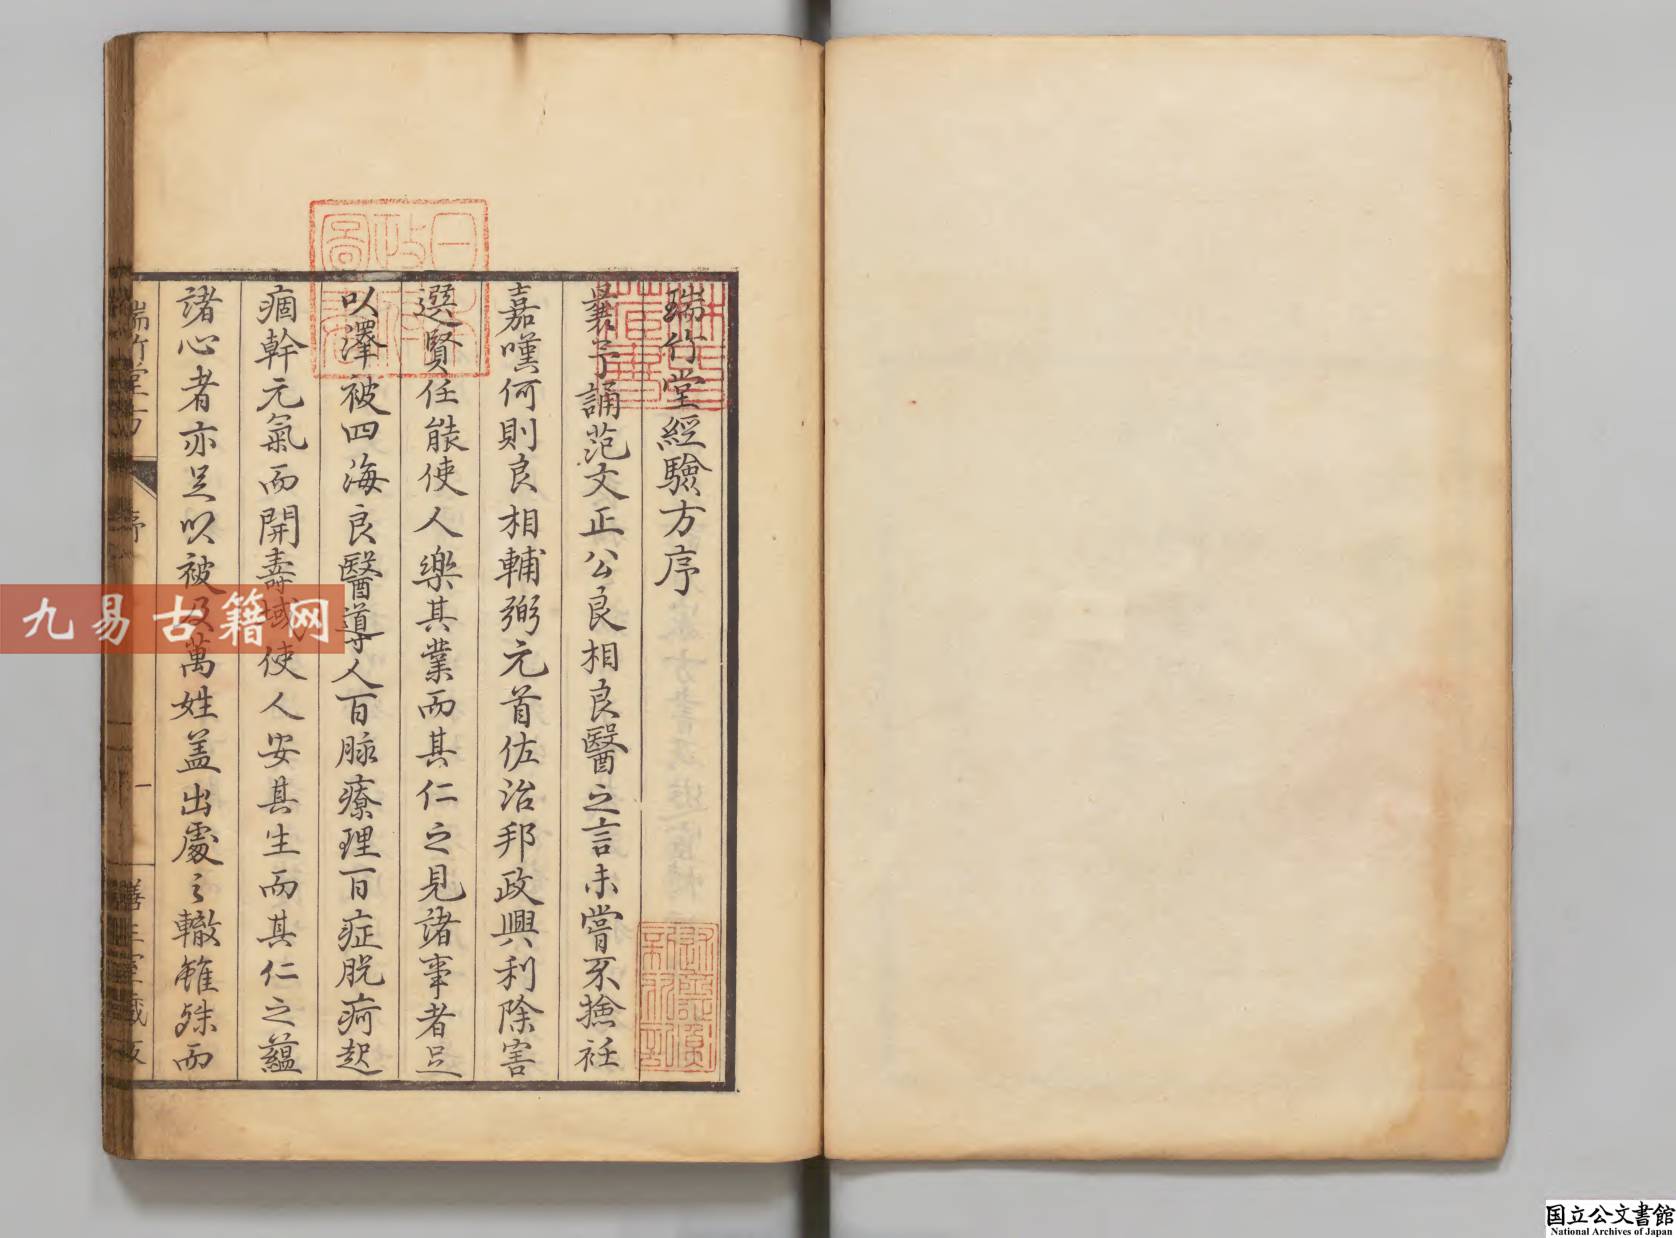 瑞竹堂經驗方序
曩予誦范文正公良相良醫之言未嘗不捨衽
嘉嘆何則良相輔弼元首佐治邦政興利除害
選賢任能使人樂其業而其仁之見諸事者足
以澤被四海良醫導人百脉療理百症脫疴起
痼幹元氣而開壽域使人安其生而其仁之蘊
諸心者亦足以被及萬姓盖出處之轍雖殊而
瑞竹堂方
序
一
日本政府圖書
九易古籍网
国立公文書館
National Archives of Japan